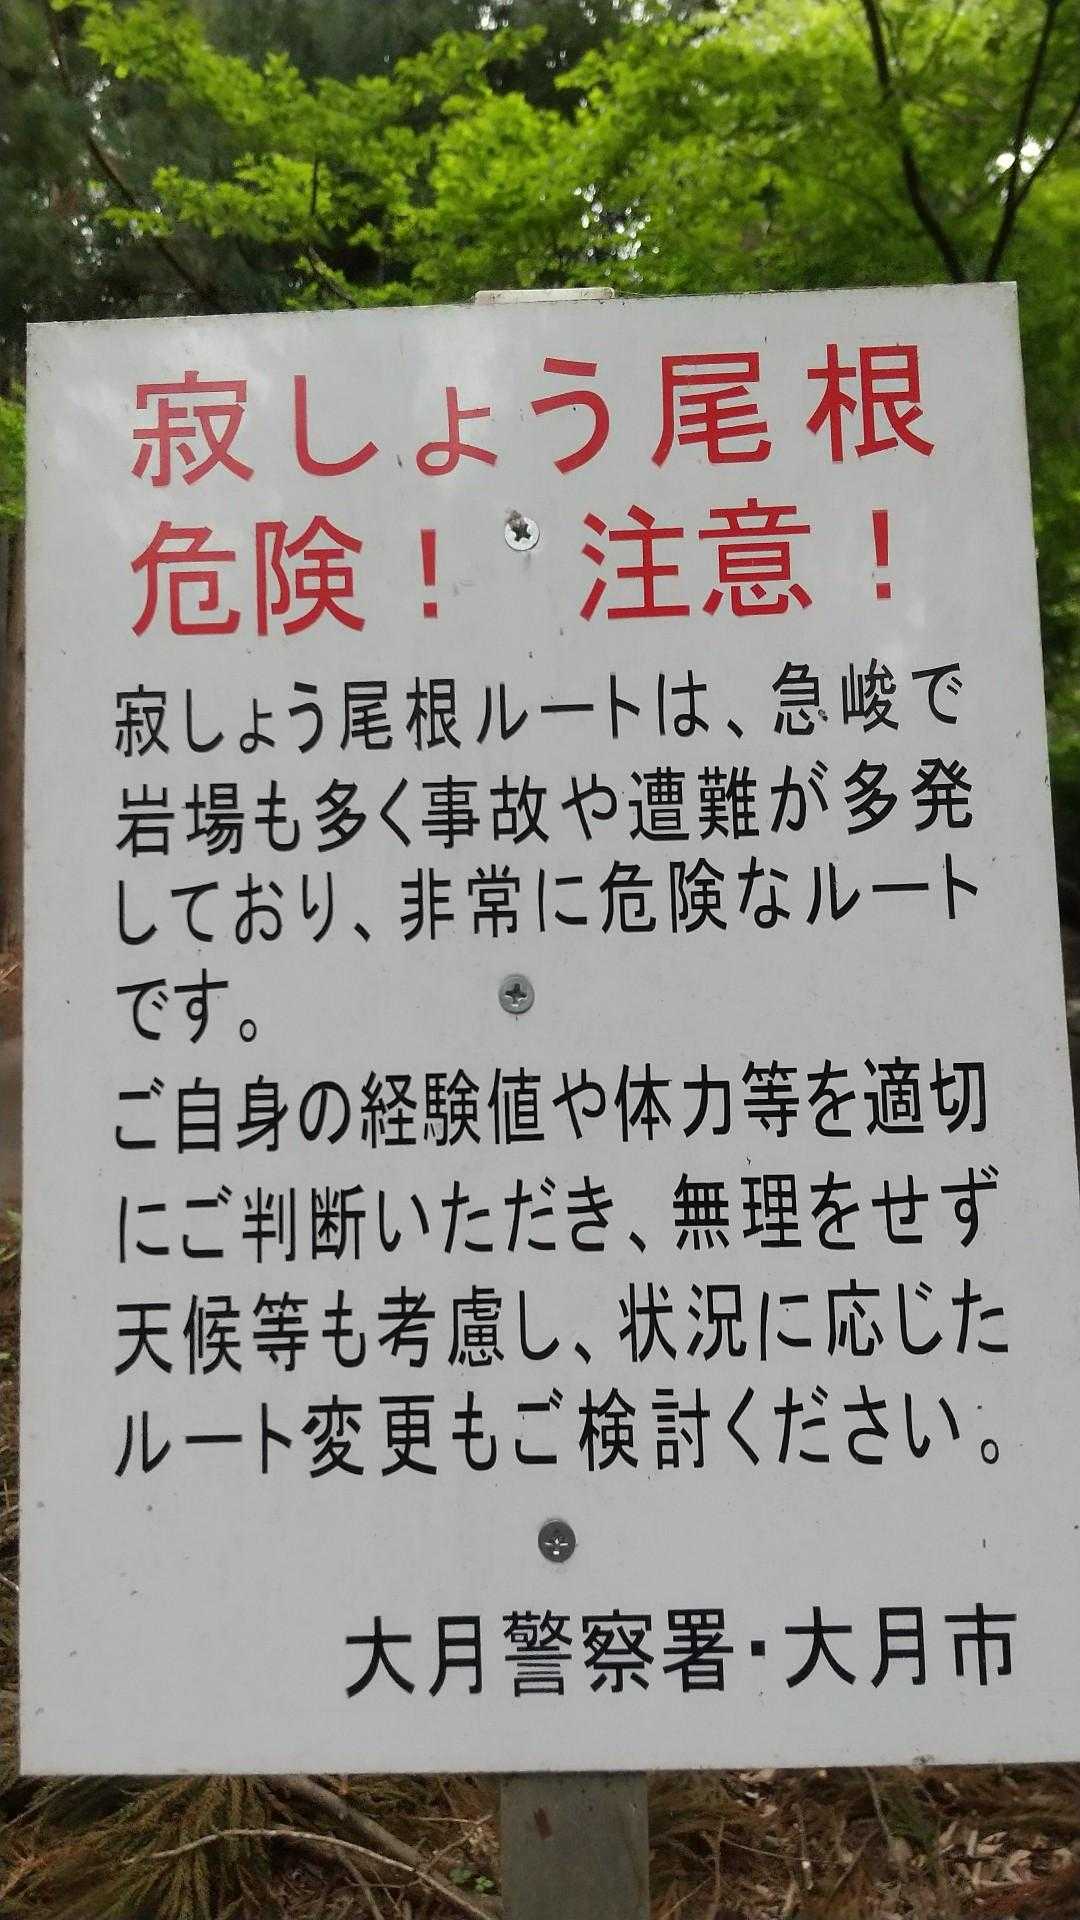 寂しょう尾根
危険！ 注意！
寂しょう尾根ルートは、急峻で
岩場も多く事故や遭難が多発
しており、非常に危険なルート
です。
ご自身の経験値や体力等を適切
にご判断いただき、無理をせず
天候等も考慮し、状況に応じた
ルート変更もご検討ください。
大月警察署・大月市